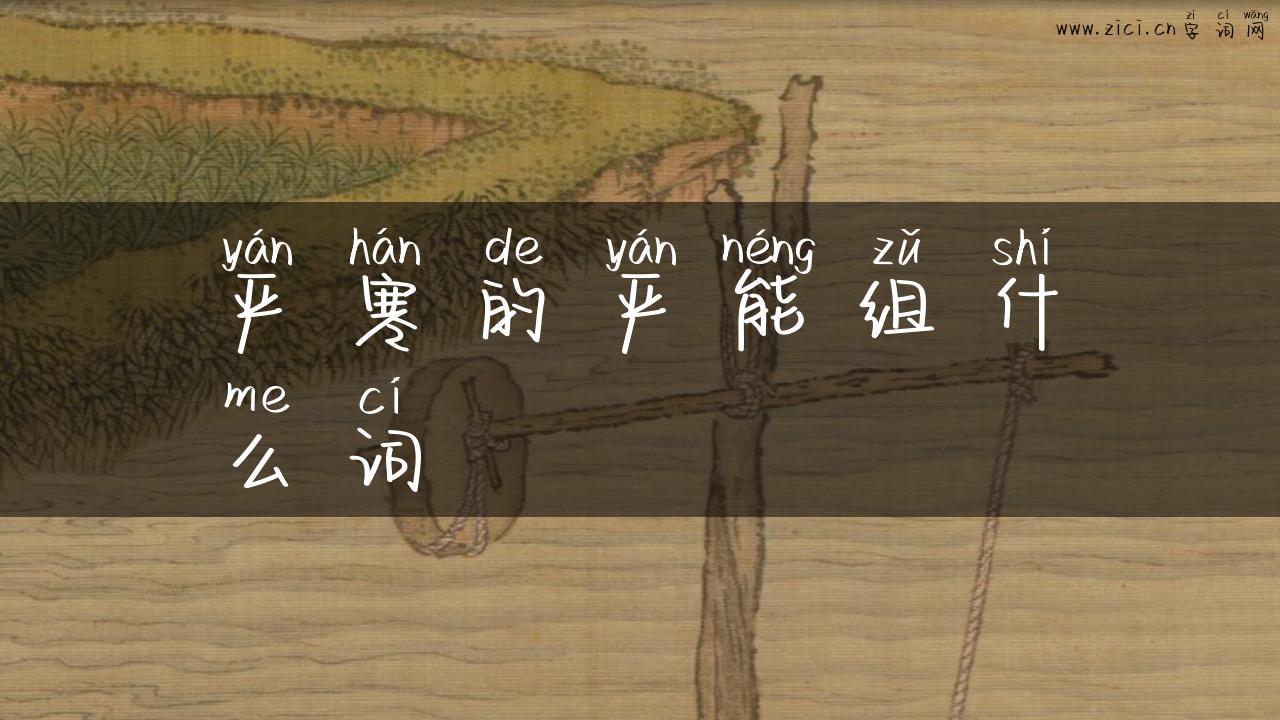 zì cí wǎng
www.zici.cn 字 词 网
yán hán de yán néng zǔ shí
严 寒 的 严 能 组 什
me cí
么 词